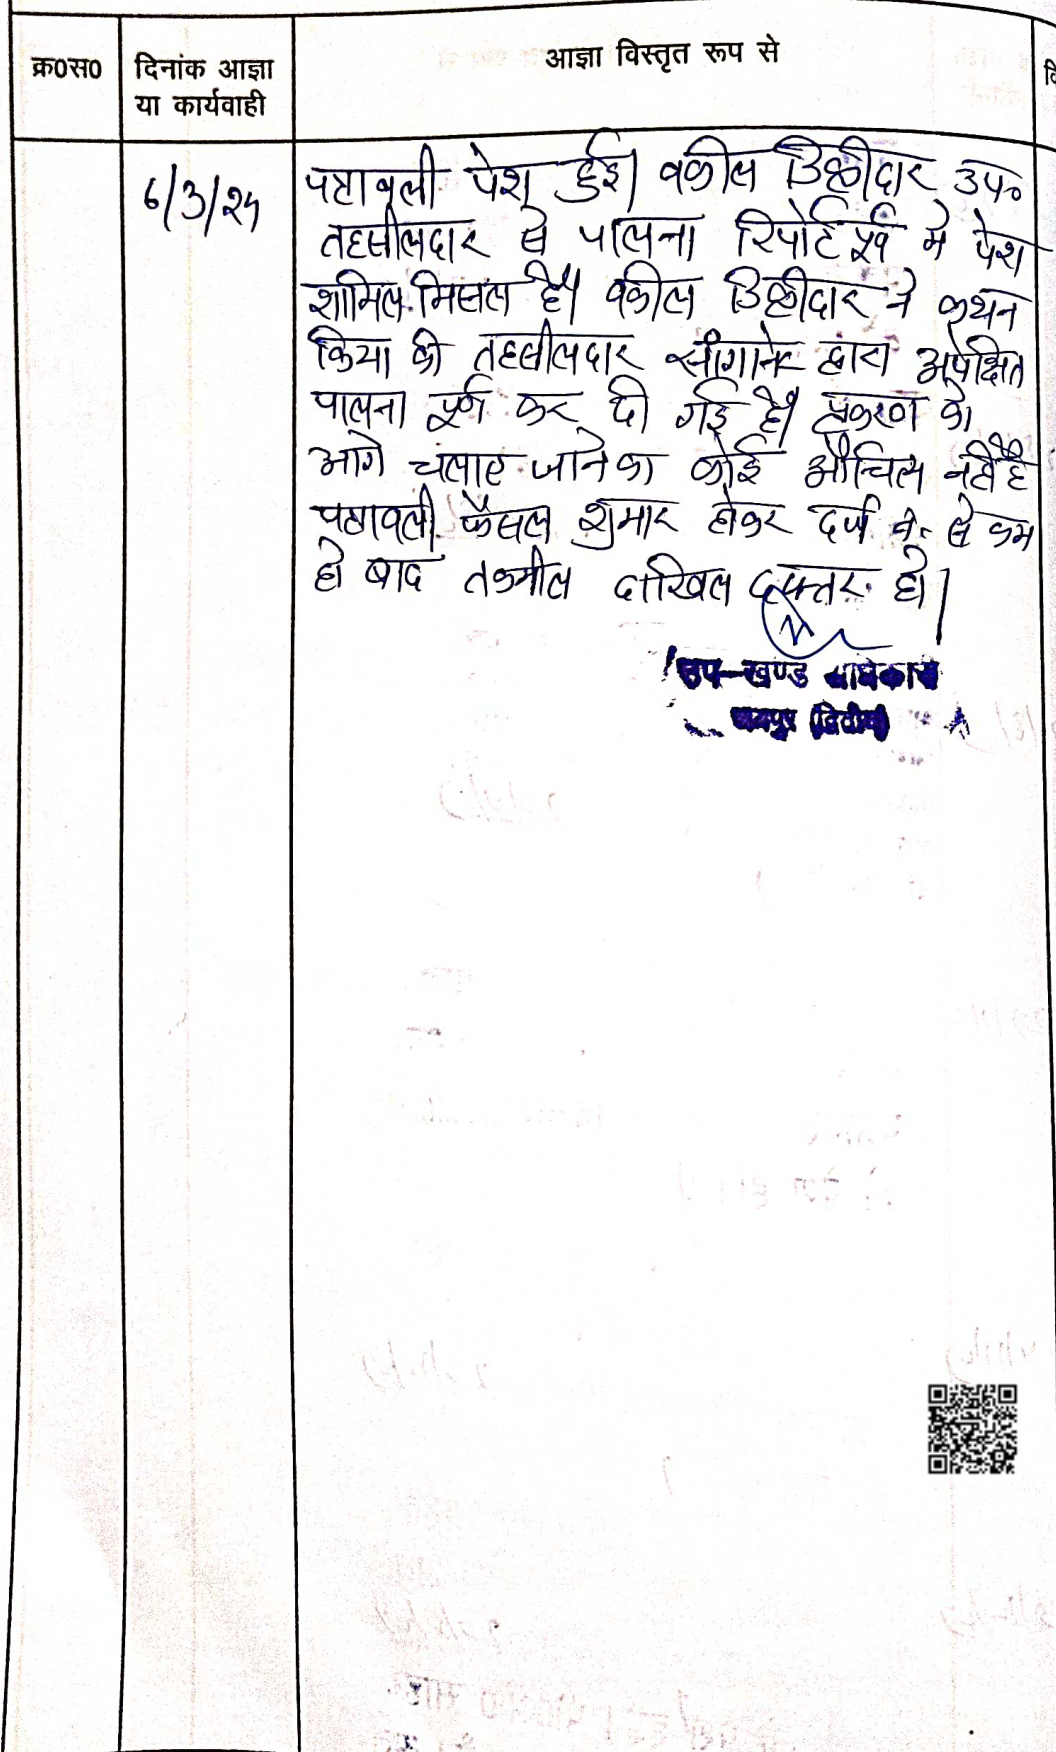 क्र0स0
दिनांक आज्ञा
या कार्यवाही
आज्ञा विस्तृत रूप से
6/3/25
पत्रावली पेश हुई। वकील डिक्रीदार उप०
तहसीलदार से पालना रिपोर्ट पूर्व मे पेश
शामिल मिसल है। वकील डिक्रीदार ने कथन
किया की तहसीलदार सांगानेर द्वारा अपेक्षित
पालना पूर्ण कर दी गई है। प्रकरण को
आगे चलाए जाने का कोई औचित्य नहीं है
पत्रावली फैसल शुमार होकर दर्ज न. से कम
हो बाद तकमील दाखिल दफ्तर हो।
उप-खण्ड अधिकारी
जयपुर (द्वितीय)